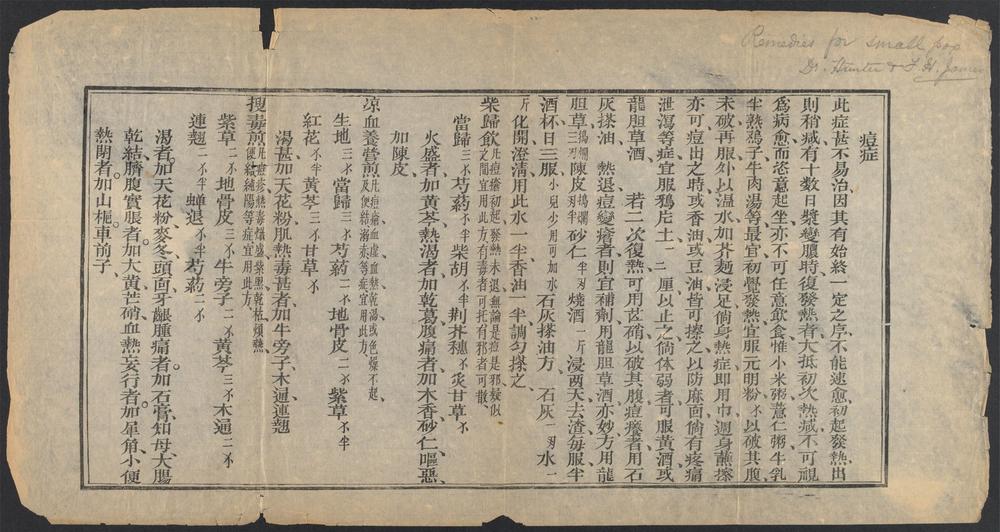 Remedies for small pox
Dr. Hunter & F. H. James
痘症
此症甚不易治因其有始終一定之序不能速愈初起發熱出
則稍減有十數日漿變膿時復發熱者大抵初次熱減不可視
爲病愈而恣意起坐亦不可任意飲食惟小米粥薏仁粥牛乳
半熟鷄子牛肉湯等最宜初覺發熱宜服元明粉
以破其腹
未破再服外以温水加芥麵浸足倘身熱症即用巾週身蘸擦
亦可痘出之時或香油或豆油皆可擦之以防麻面倘有疼痛
泄瀉等症宜服鴉片土一二厘以止之倘体弱者可服黄酒或
龍胆草酒 若二次復熱可用芒硝以破其腹痘癢者用石
灰搽油 熱退痘變瘡者則宜補劑用龍胆草酒亦妙方用龍
胆草搗爛三刄陳皮搗爛刄半砂仁刄半燒酒一斤浸两天去渣每服半
酒杯日三服小兒少用可加水 石灰搽油方 石灰一刄水一
斤化開澄淸用此水一半香油一半調匀搽之
柴歸飲凡痘瘡初起發熱未退無論是痘是邪疑似之間宜用此方有毒者可托有邪者可散
當歸三不芍藥不半柴胡不半荆芥穗不炙甘草不
火盛者加黄芩熱渴者加乾葛腹痛者加木香砂仁嘔惡
加陳皮
凉血養營煎凡痘瘡血虛血熱乾渴或色燥不起及便結溺赤等症宜用此方
生地三不當歸三不芍藥二不地骨皮二不紫草不半
紅花不半黄芩三不甘草不
湯甚加天花粉肌熱毒甚者加牛旁子木通連翹
搜毒煎凡痘疹熱毒熾盛紫黑乾枯煩熱便結純陽等症宜用此方
紫草二不半地骨皮三不牛旁子二不黄芩三不木通二不
連翹二不半蟬退不半芍藥二不
湯者加天花粉麥冬頭面牙齦腫痛者加石膏知母大腸
乾結臍腹實脹者加大黄芒硝血熱妄行者加犀角小便
熱閉者加山梔車前子